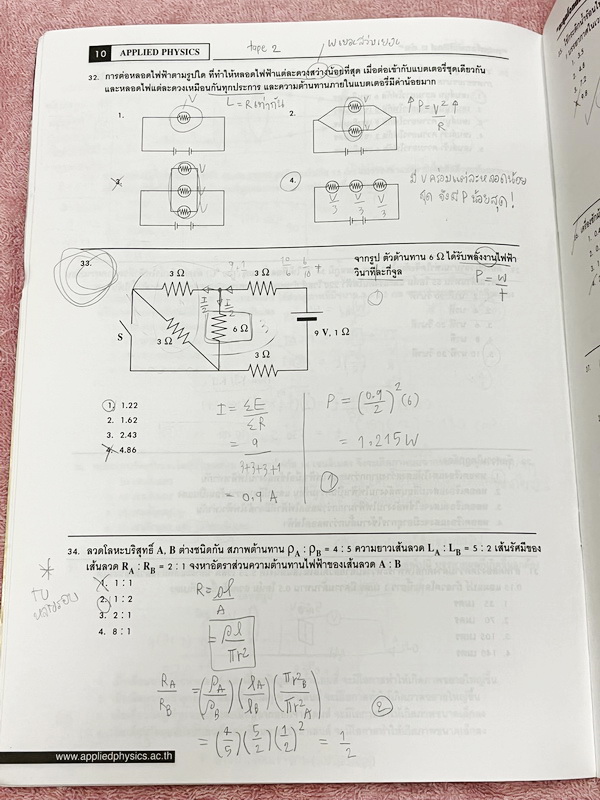 10 APPLIED PHYSICS
tape 2
32. การต่อหลอดไฟฟ้าตามรูปใด ที่ทำให้หลอดไฟฟ้าแต่ละดวงสว่างน้อยที่สุด เมื่อต่อเข้ากับแบตเตอรี่ชุดเดียวกัน
และหลอดไฟแต่ละดวงเหมือนกันทุกประการ และความต้านทานภายในแบตเตอรี่มีค่าน้อยมาก
L = R เท่ากัน
1.
V
2.
V
V
↑ P = V² ↑
R
3.
V
V
V
4.
V/3 V/3 V/3
มี V คร่อมแต่ละหลอดน้อย
สุด จึงมี P น้อยสุด!
33.
จากรูป ตัวต้านทาน 6 Ω ได้รับพลังงานไฟฟ้า
วินาทีละกี่จูล
P = W
t
3 Ω
3 Ω
I/2
I/2
I
S
3 Ω
6 Ω
9 V, 1 Ω
3 Ω
1. 1.22
2. 1.62
3. 2.43
4. 4.86
I = ΣE
ΣR
= 9
3+3+3+1
= 0.9 A
P = (0.9/2)² (6)
= 1.215 W
1
34. ลวดโลหะบริสุทธิ์ A, B ต่างชนิดกัน สภาพต้านทาน ρA : ρB = 4 : 5 ความยาวเส้นลวด LA : LB = 5 : 2 เส้นรัศมีของ
เส้นลวด RA : RB = 2 : 1 จงหาอัตราส่วนความต้านทานไฟฟ้าของเส้นลวด A : B
1. 1 : 1
2. 1 : 2
3. 2 : 1
4. 8 : 1
R = ρl
A
= ρl
πr²
RA/RB = (ρA/ρB)(lA/lB)(πr²B/πr²A)
2
= (4/5)(5/2)(1/2)² = 1/2
www.appliedphysics.ac.th